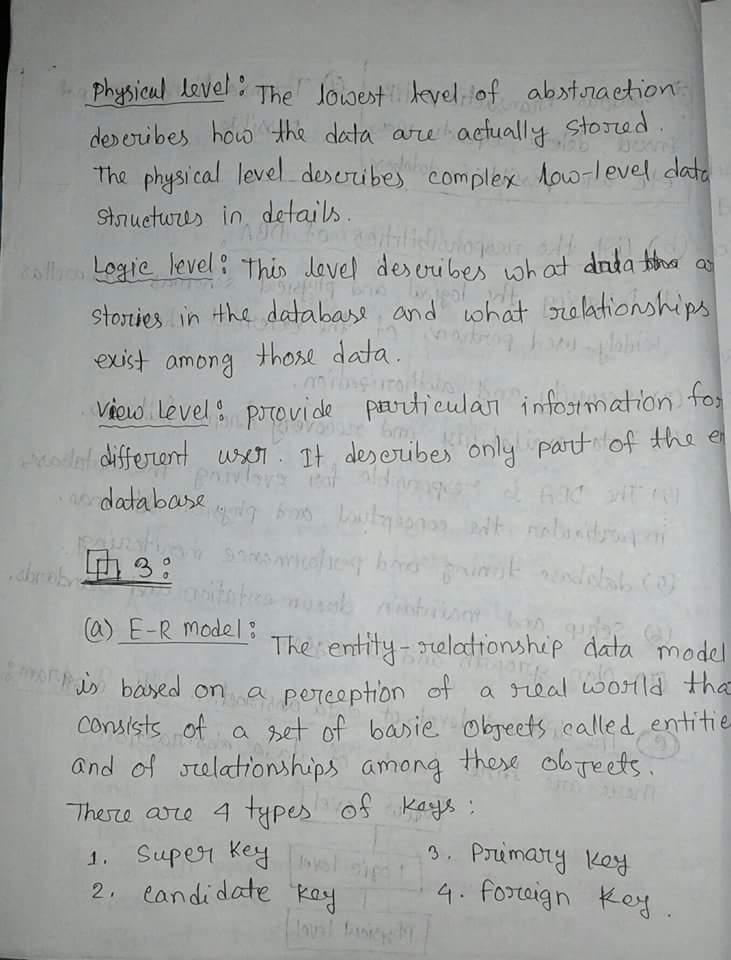 Physical level: The lowest level of abstraction
describes how the data are actually stored.
The physical level describes complex low-level data
structures in details.
Logic level: This level describes what data a
stories in the database and what relationships
exist among those data.
View Level: provide particular information for
different user. It describes only part of the en
database.
3:
(a) E-R model: The entity-relationship data model
is based on a perception of a real world tha
consists of a set of basic objects called entitie
and of relationships among these objects.
There are 4 types of keys:
1. Super key 3. Primary key
2. Candidate key 4. Foreign key.